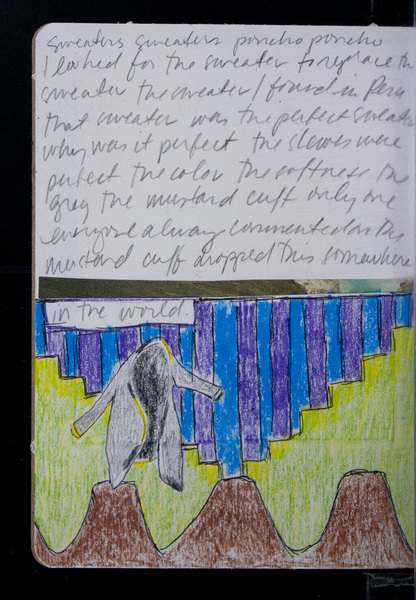 sweaters sweaters poncho poncho
I looked for the sweater to replace the
sweater the sweater I found in Peru
that sweater was the perfect sweater
why was it perfect the sleeves were
perfect the color the softness the
gray the mustard cuff only one
everyone always commented on the
mustard cuff dropped this somewhere
in the world.